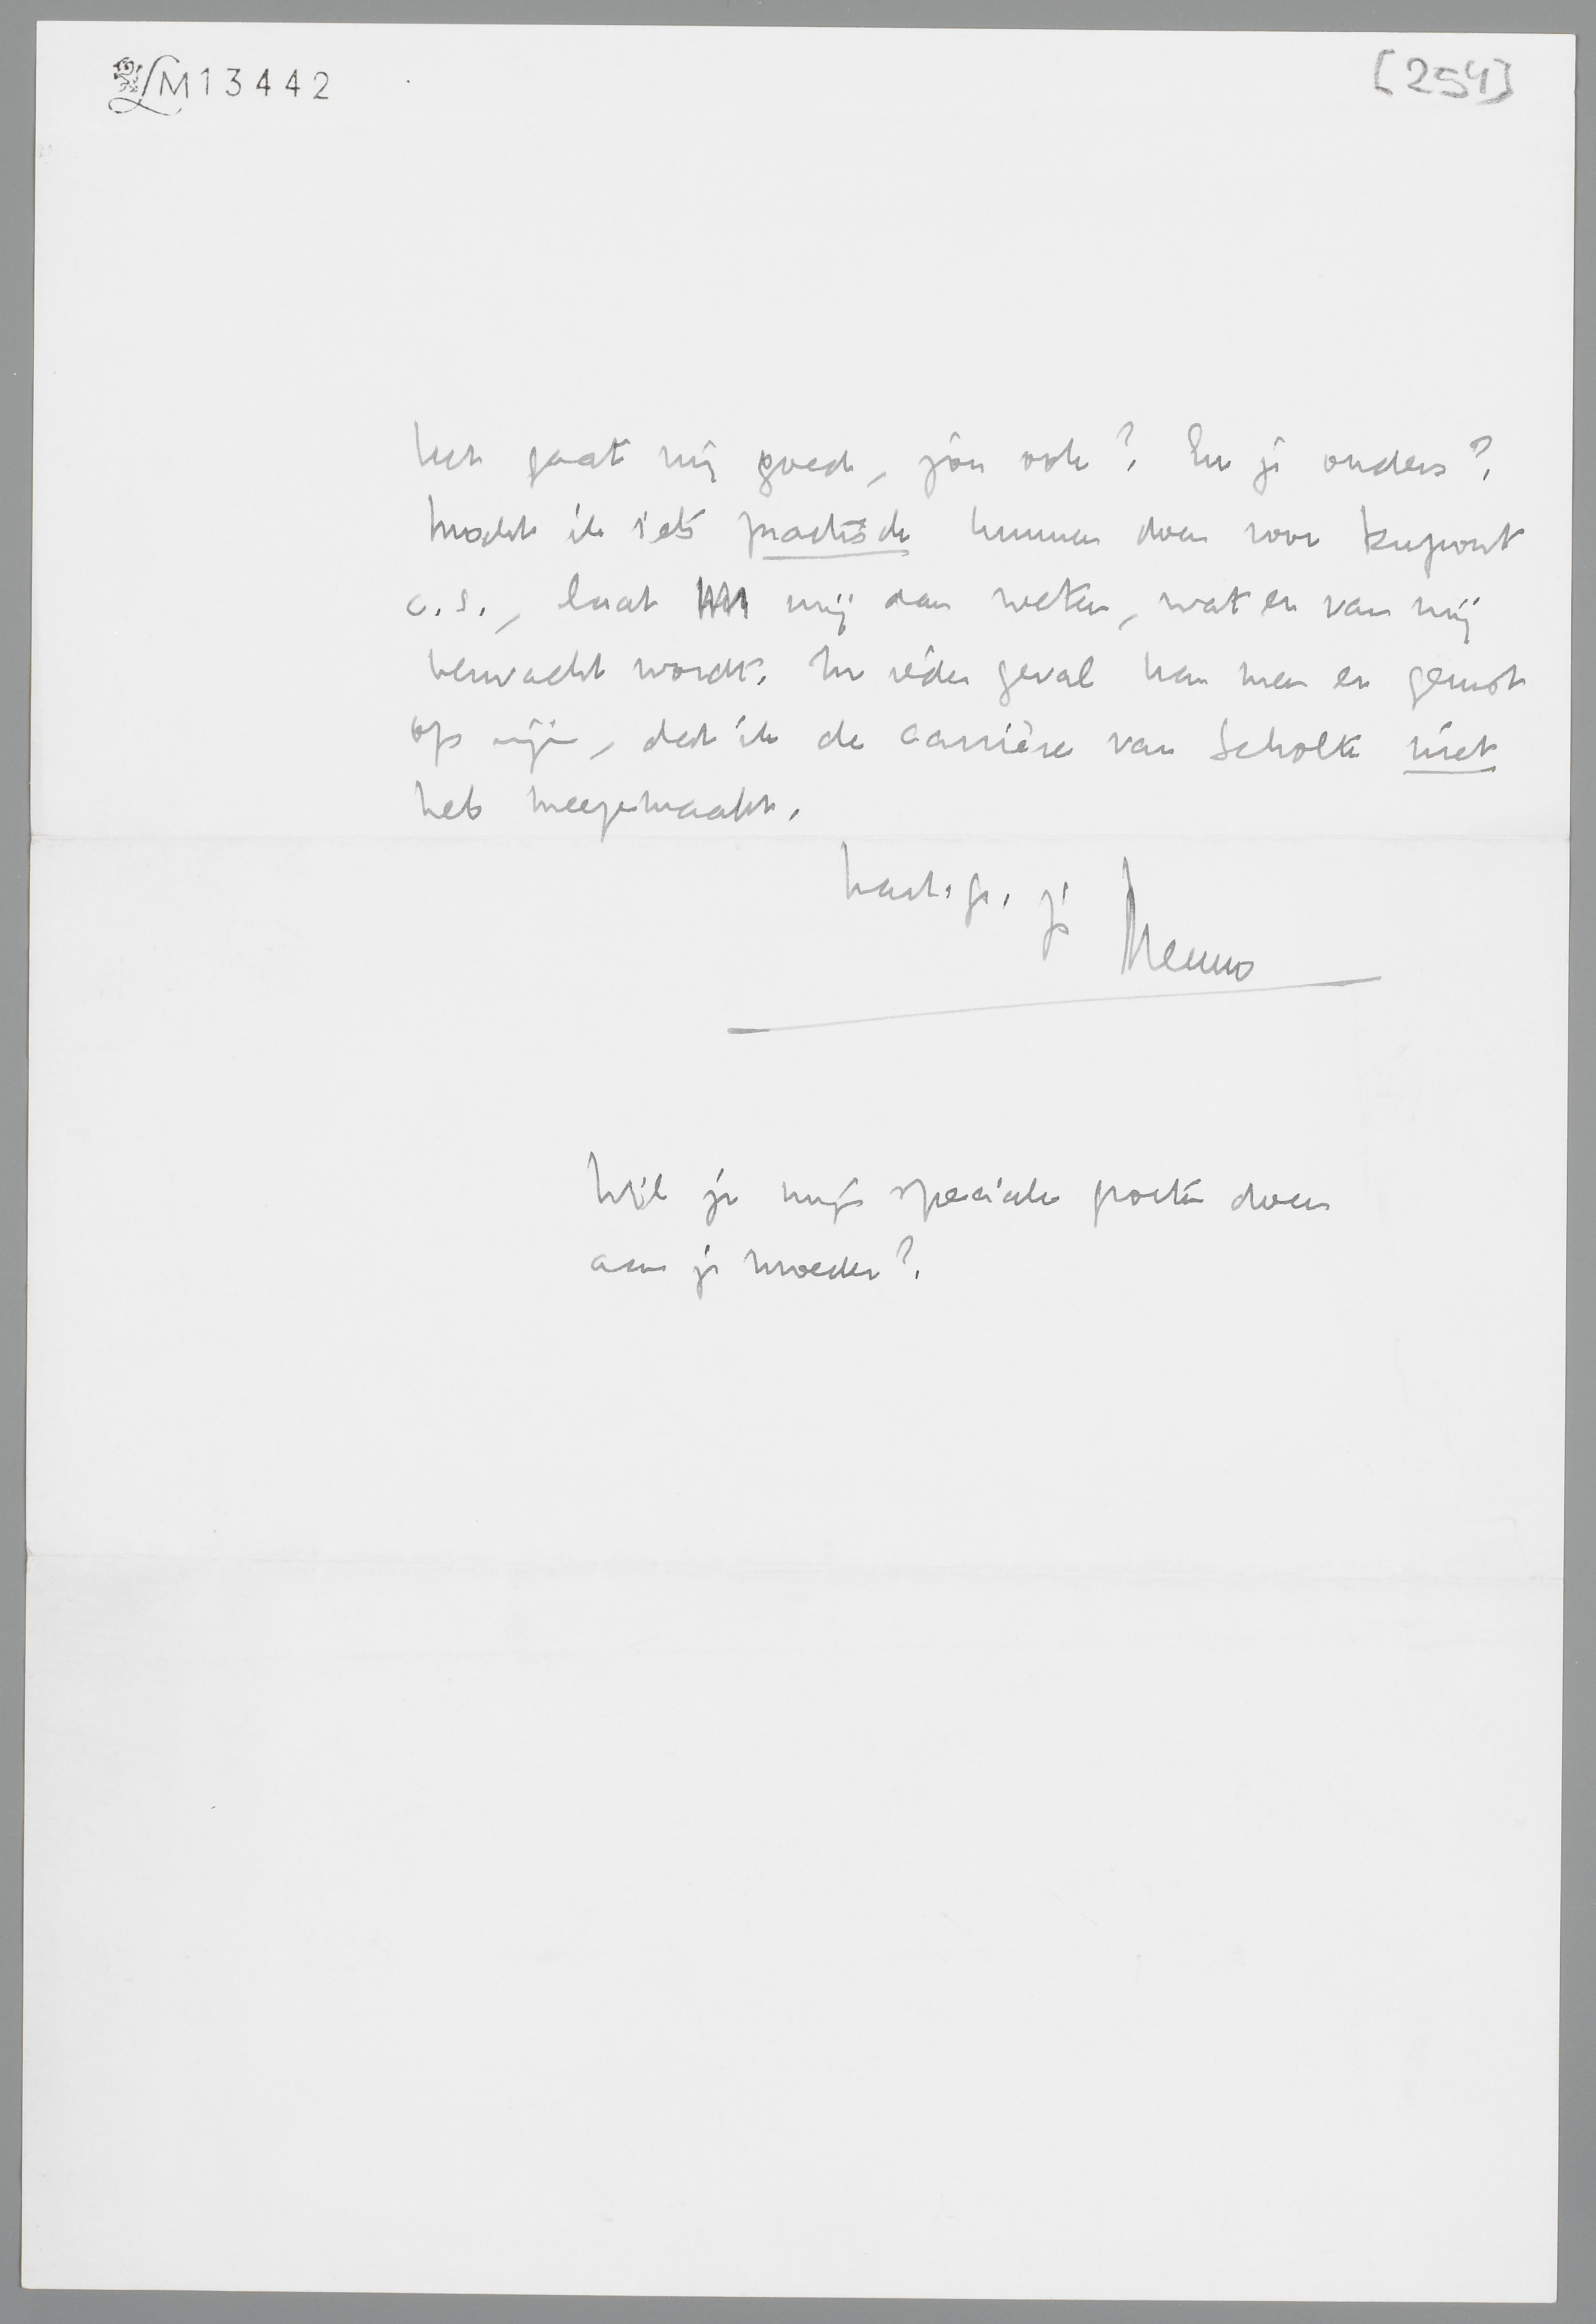 LM13442
[254]
het gaat mij goed, jou ook? En je ouders?
Mocht ik iets practisch kunnen doen voor
c.s., laat mij dan weten, wat er van mij
verwacht wordt. In ieder geval kan men er gerust
op zijn, dat ik de carrière van Scholte niet
heb meegemaakt.
hart. gr. je Menno
Wil je mijn speciale groeten doen
aan je moeder?